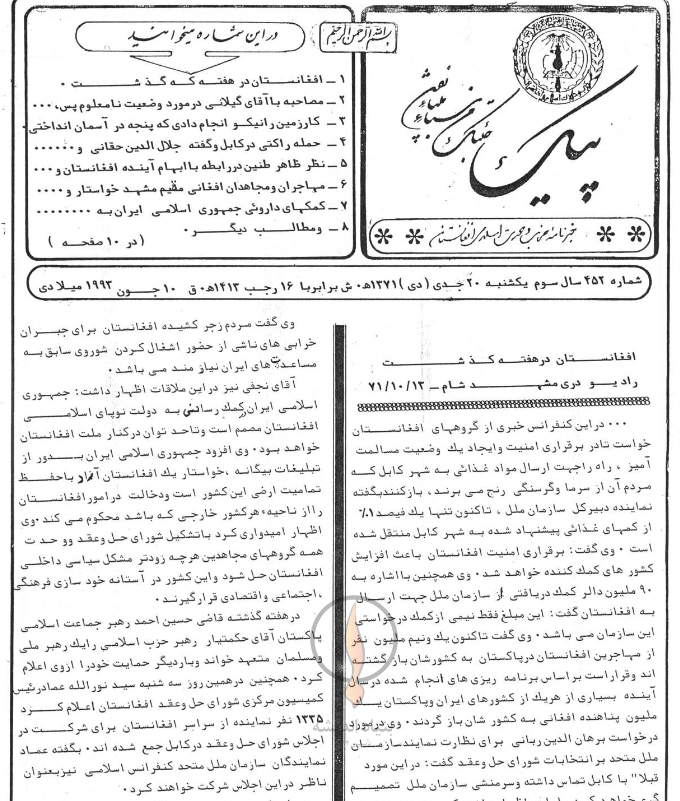 بسم الله الرحمن الرحیم
پیک
خبرنامه حزب وحدت اسلامی افغانستان
در این شماره میخوانید
۱ ــ افغانستان در هفته که گذشت ۰
۲ ــ مصاحبه با آقای گیلانی در مورد وضعیت نامعلوم پس۰۰۰
۳ ــ کارزمین رانیکو انجام دادی که پنجه در آسمان انداختی
۴ ــ حمله راکتی درکابل وگفته جلال الدین حقانی و۰۰۰۰۰۰
۵ ــ نظر ظاهر طنین دررابطه با ابهام آینده افغانستان و۰۰۰
۶ ــ مهاجران ومجاهدان افغانی مقیم مشهد خواستار و۰۰۰۰
۷ ــ کمکهای داروئی جمهوری اسلامی ایران به ۰۰۰۰۰۰۰۰
۸ ــ ومطالب دیگر ۰
( در ۱۰ صفحه )
شماره ۴۵۲ سال سوم یکشنبه ۲۰ جدی ( دی ) ۱۳۷۱ه۰ ش برابربا ۱۶ رجب ۱۴۱۳ه۰ ق ۱۰ جون ۱۹۹۳ میلادی
افغانستان درهفته که گذشت
رادیو دری مشهد شام ــ ۷۱/۱۰/۱۲
۰۰۰ دراین کنفرانس خبری از گروههای افغانستان
خواست تادر برقراری امنیت وایجاد یك وضعیت مسالمت
آمیز ، راه راجهت ارسال مواد غذائی به شهر کابل که
مردم آن از سرما وگرسنگی رنج می برند، بازکنندبگفته
نماینده دبیرکل سازمان ملل ، تاکنون تنها یك فیصد ۱٪
از کمهای غذائی پیشنهاد شده به شهر کابل منتقل شده
است ۰ وی گفت: برقراری امنیت افغانستان باعث افزایش
کشور های کمك کننده خواهد شد ۰ وی همچنین بااشاره به
۹۰ ملیون دالر کمك دریافتی از سازمان ملل جهت ارسال
به افغانستان گفت: این مبلغ فقط نیمی ازکمك درخواستی
این سازمان می باشد ۰ وی گفت تاکنون یك ونیم ملیون نفر
از مهاجرین افغانستان درپاکستان به کشورشان بازگشته
اند وقراراست براساس برنامه ریزی های انجام شده درسال
آینده بسیاری از هریك از کشورهای ایران وپاکستان یك
ملیون پناهنده افغانی به کشور شان باز گردند ۰ وی درمورد
درخواست برهان الدین ربانی برای نظارت نمایندسازمان
ملل متحد برانتخابات شورای حل وعقد گفت: دراین مورد
قبلا" با کابل تماس داشته وسرمنشی سازمان ملل تصمیم
وی گفت مردم زجر کشیده افغانستان برای جبران
خرابی های ناشی از حضور اشغال کردن شوروی سابق به
مساعدت های ایران نیاز مند می باشد ۰
آقای نجفی نیز دراین ملاقات اظهار داشت: جمهوری
اسلامی ایران کمك رسانی به دولت نوپای اسلامی
افغانستان مصمم است وتاحد توان درکنار ملت افغانستان
خواهد بود۰ وی افزود جمهوری اسلامی ایران بدور از
تبلیغات بیگانه ،خواستار یك افغانستان آزاد باحفظ
تمامیت ارضی این کشور است ودخالت درامورافغانستان
را از ناحیه هرکشور خارجی که باشد محکوم می کند ۰وی
اظهار امیدواری کرد باتشکیل شورای حل وعقد ووحدت
همه گروههای مجاهدین هرچه زودتر مشکل سیاسی داخلی
افغانستان حل شود واین کشور در آستانه خود سازی فرهنگی
،اجتماعی واقتصادی قرارگیرند ۰
درهفته گذشته قاضی حسین احمد رهبر جماعت اسلامی
پاکستان آقای حکمتیار رهبر حزب اسلامی رایك رهبر ملی
ومسلمان متعهد خواند وباردیگر حمایت خودرا ازوی اعلام
کرد ۰ همچنین درهمین روز سه شنبه سید نورالله عمادرئیس
کمیسیون مرکزی شورای حل وعقد افغانستان اعلام کرد
۱۳۳۵ نفر نماینده از سراسر افغانستان برای شرکت در
اجلاس شورای حل وعقد درکابل جمع شده اند ۰ بگفته عماد
نمایندگان سازمان ملل متحد کنفرانس اسلامی نیزبعنوان
ناظر دراین اجلاس شرکت خواهند کرد ۰